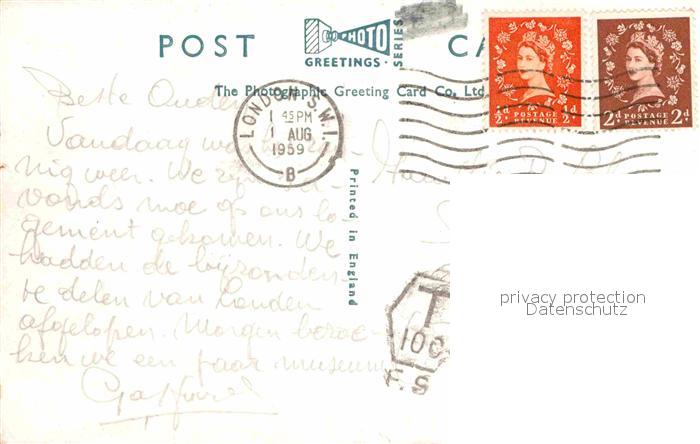 POST CA
PHOTO
GREETINGS · SERIES
The Photographic Greeting Card Co. Ltd
Printed in England
LONDON S.W.1.
1 45 PM
1 AUG
1959
B
½d POSTAGE REVENUE ½d
2d POSTAGE REVENUE 2d
Beste Ouders
Vandaag
nig weer. We zijn
vonds moe op ons lo-
gement gekomen. We
hadden de bijzonder-
te delen van Londen
afgelopen. Morgen bezoe-
ken we een paar museums
T
10C
F.S
privacy protection
Datenschutz